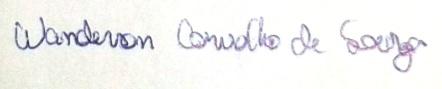 Wanderson Carvalho de Souza